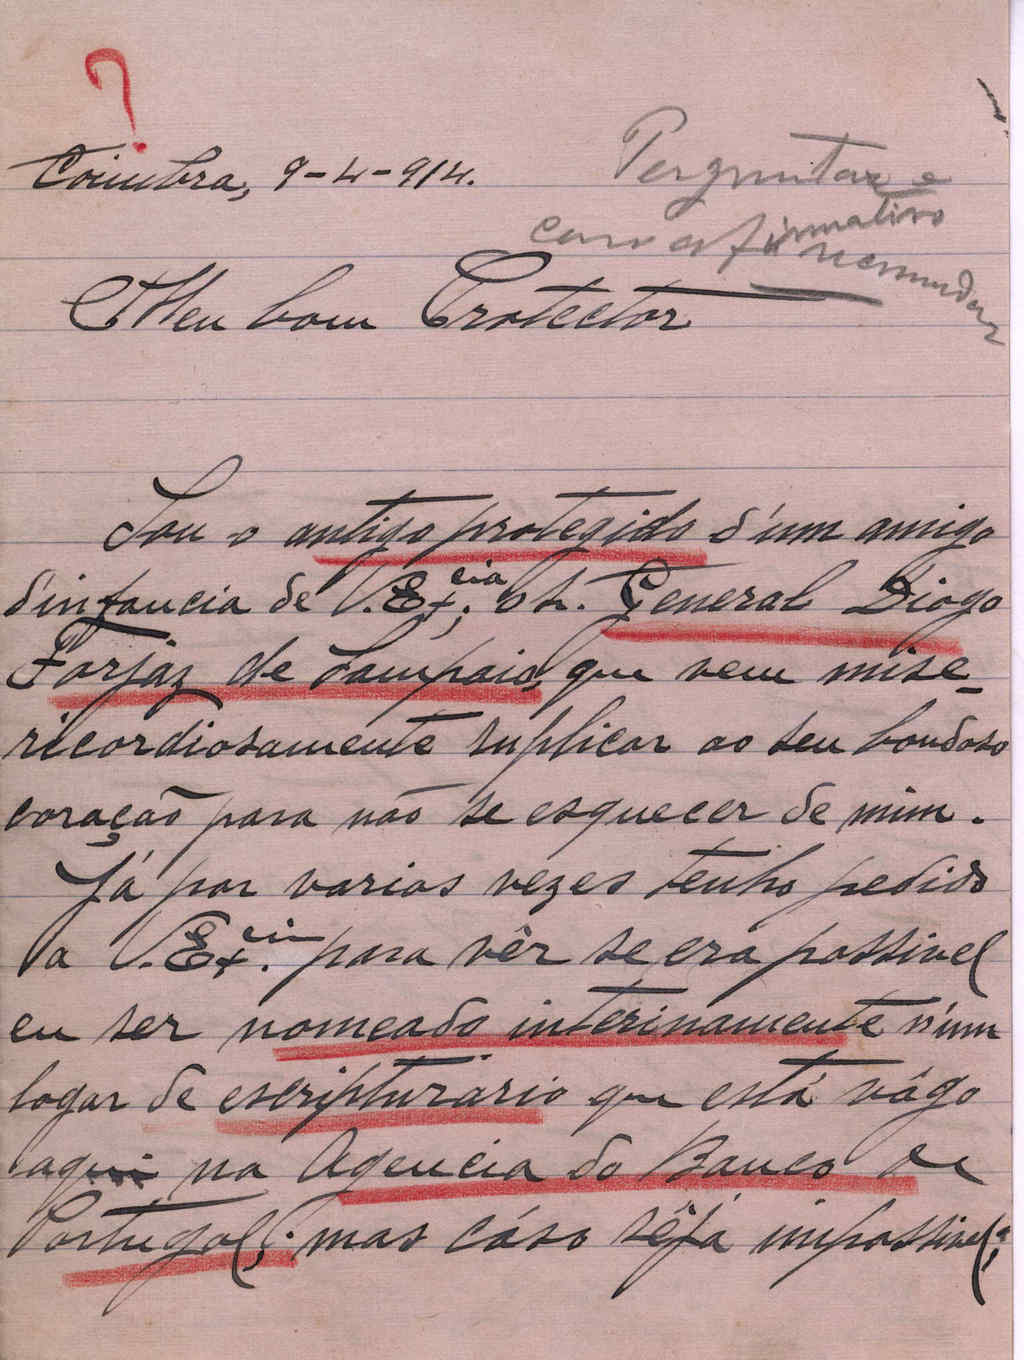 ?
Coimbra, 9-4-914.
Perguntar e
caso afirmativo
recomendar
Meu bom Protector
Sou o antigo protegido d'um amigo
d'infancia de V. Ex.cia, o Sr. General Diogo
Forjaz de Sampaio, que vem mise-
ricordiosamente suplicar ao seu bondoso
coração para não se esquecer de mim.
Já por varias vezes tenho pedido
a V. Ex.cia para vêr se era possivel
eu ser nomeado interinamente n'um
logar de escripturario que está vágo
aqui na Agencia do Banco de
Portugal; mas cáso sêja impossivel;